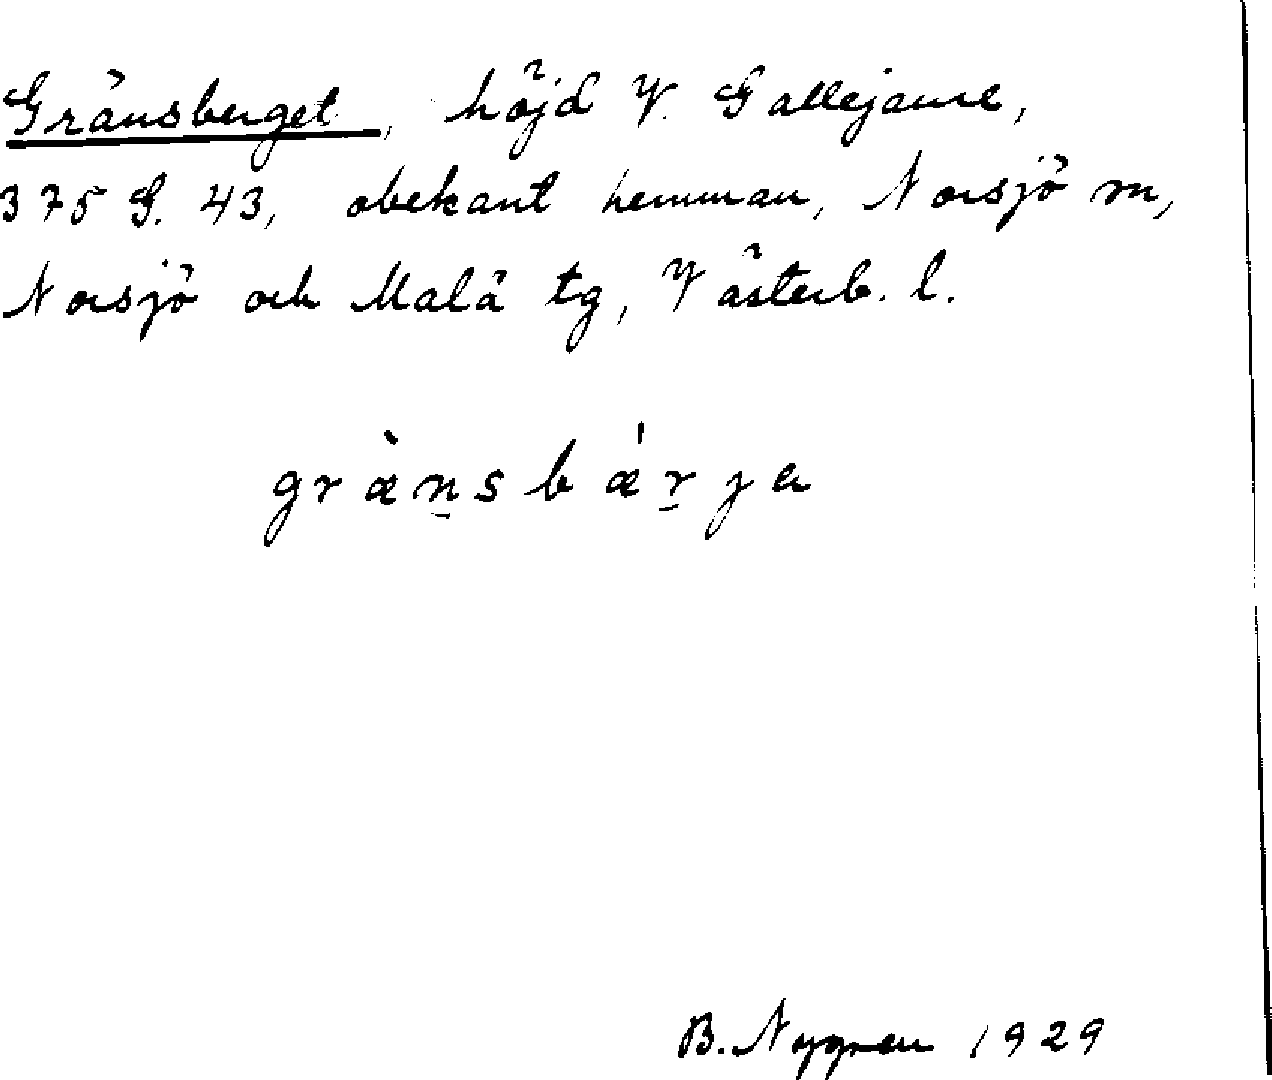 Gränsberget, höjd V. Gallejaure,
375 S. 43, obekant hemman, Norsjö sn,
Norsjö och Malå tg, Västerb. l.
græ̀n̠sbǽr̠ja
B. Nygren 1929